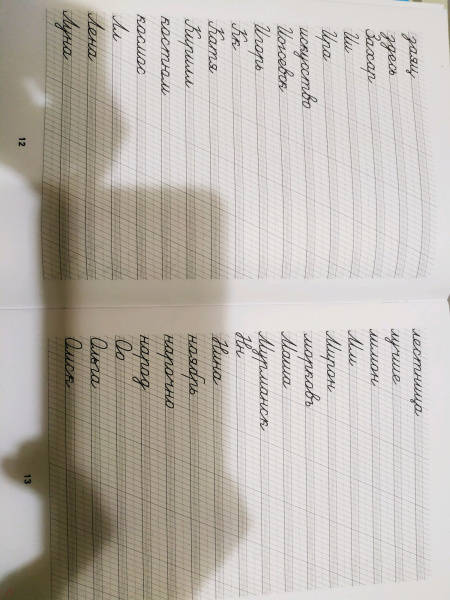 заяц
здесь
Захар
Ии
Ира
искусство
Ижевск
Игорь
Кк
Катя
Кирилл
костюм
космос
Лл
Лена
Луна
12
лестница
лучше
лимон
Мм
Мирон
морковь
Маша
Мурманск
Нн
Нина
ноябрь
нарочно
народ
Оо
Ольга
Омск
13